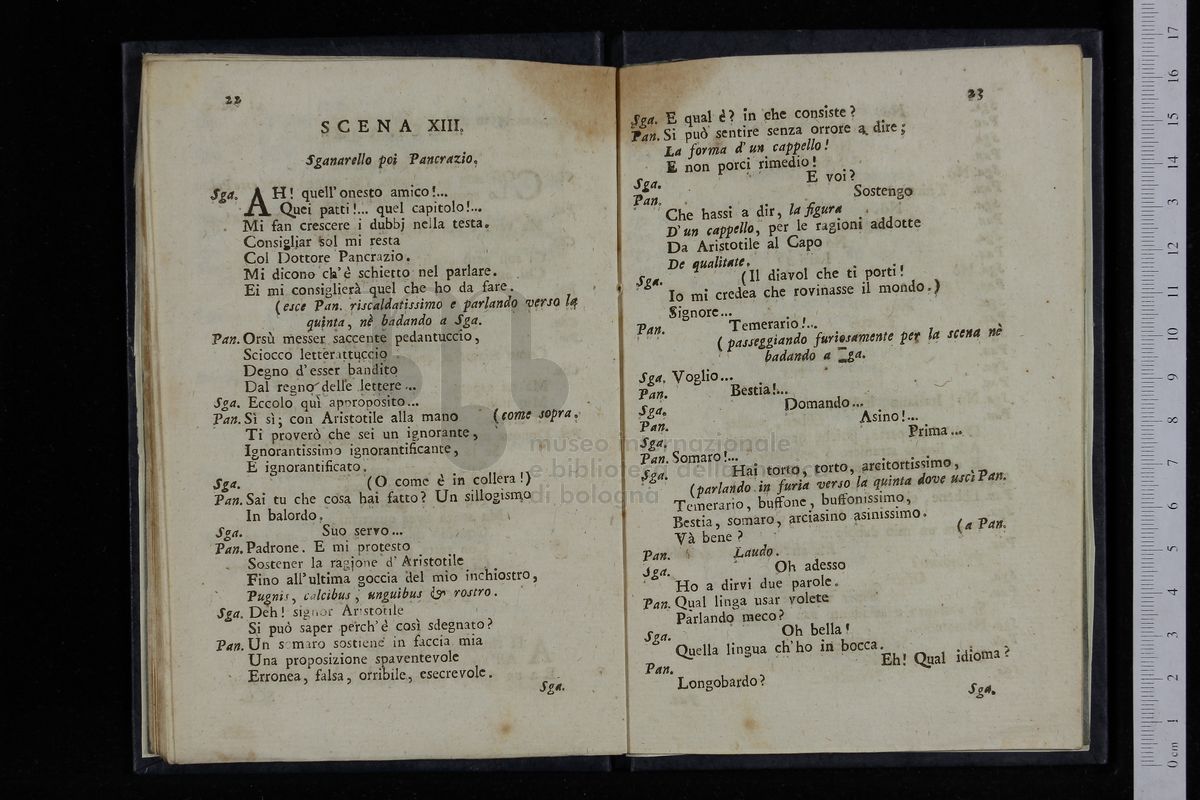 22
SCENA XIII.
Sganarello poi Pancrazio.
Sga. AH! quell' onesto amico!...
Quei patti!... quel capitolo!...
Mi fan crescere i dubbj nella testa.
Consigliar sol mi resta
Col Dottore Pancrazio.
Mi dicono ch'è schietto nel parlare.
Ei mi consiglierà quel che ho da fare.
(esce Pan. riscaldatissimo e parlando verso la
quinta, nè badando a Sga.
Pan. Orsù messer saccente pedantuccio,
Sciocco letterattuccio
Degno d'esser bandito
Dal regno delle lettere...
Sga. Eccolo quì approposito...
Pan. Sì sì; con Aristotile alla mano (come sopra.
Ti proverò che sei un ignorante,
Ignorantissimo ignorantificante,
E ignorantificato.
Sga. (O come è in collera!)
Pan. Sai tu che cosa hai fatto? Un sillogismo
In balordo.
Sga. Suo servo...
Pan. Padrone. E mi protesto
Sostener la ragione d'Aristotile
Fino all'ultima goccia del mio inchiostro,
Pugnis, calcibus, unguibus & rostro.
Sga. Deh! signor Aristotile
Si può saper perch'è così sdegnato?
Pan. Un somaro sostiene in faccia mia
Una proposizione spaventevole
Erronea, falsa, orribile, esecrevole.
Sga.
23
Sga. E qual è? in che consiste?
Pan. Si può sentire senza orrore a dire;
La forma d'un cappello!
E non porci rimedio!
Sga. E voi?
Pan. Sostengo
Che hassi a dir, la figura
D'un cappello, per le ragioni addotte
Da Aristotile al Capo
De qualitate.
Sga. (Il diavol che ti porti!
Io mi credea che rovinasse il mondo.)
Signore...
Pan. Temerario!...
(passeggiando furiosamente per la scena nè
badando a Sga.
Sga. Voglio...
Pan. Bestia!...
Sga. Domando...
Pan. Asino!...
Sga. Prima...
Pan. Somaro!...
Sga. Hai torto, torto, arcitortissimo,
(parlando in furia verso la quinta dove uscì Pan.
Temerario, buffone, buffonissimo,
Bestia, somaro, arciasino asinissimo.
Và bene? (a Pan.
Pan. Laudo.
Sga. Oh adesso
Ho a dirvi due parole.
Pan. Qual linga usar volete
Parlando meco?
Sga. Oh bella!
Quella lingua ch'ho in bocca.
Pan. Eh! Qual idioma?
Longobardo?
Sga.
museo internazionale
e biblioteca della
di bologna
0 cm 1 2 3 4 5 6 7 8 9 10 11 12 13 14 15 16 17